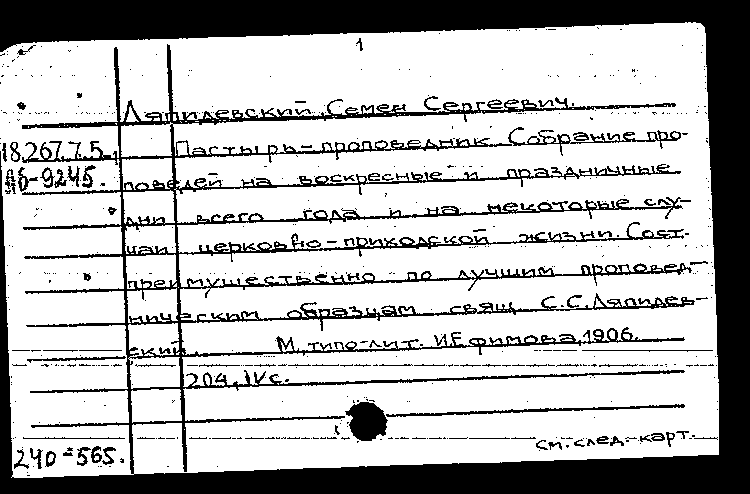 1
Ляпидевский, Семен Сергеевич.
18.267.7.5.
Пастырь-проповедник. Собрание про-
Аб-9245.
поведей на воскресные и праздничные
дни всего года и на некоторые слу-
чаи церковно-приходской жизни. Сост.
преимущественно по лучшим проповед-
ническим образцам свящ. С.С.Ляпидев-
ский. М., типо-лит. И.Ефимова, 1906.
204, IV с.
240=565.
см. след. карт.